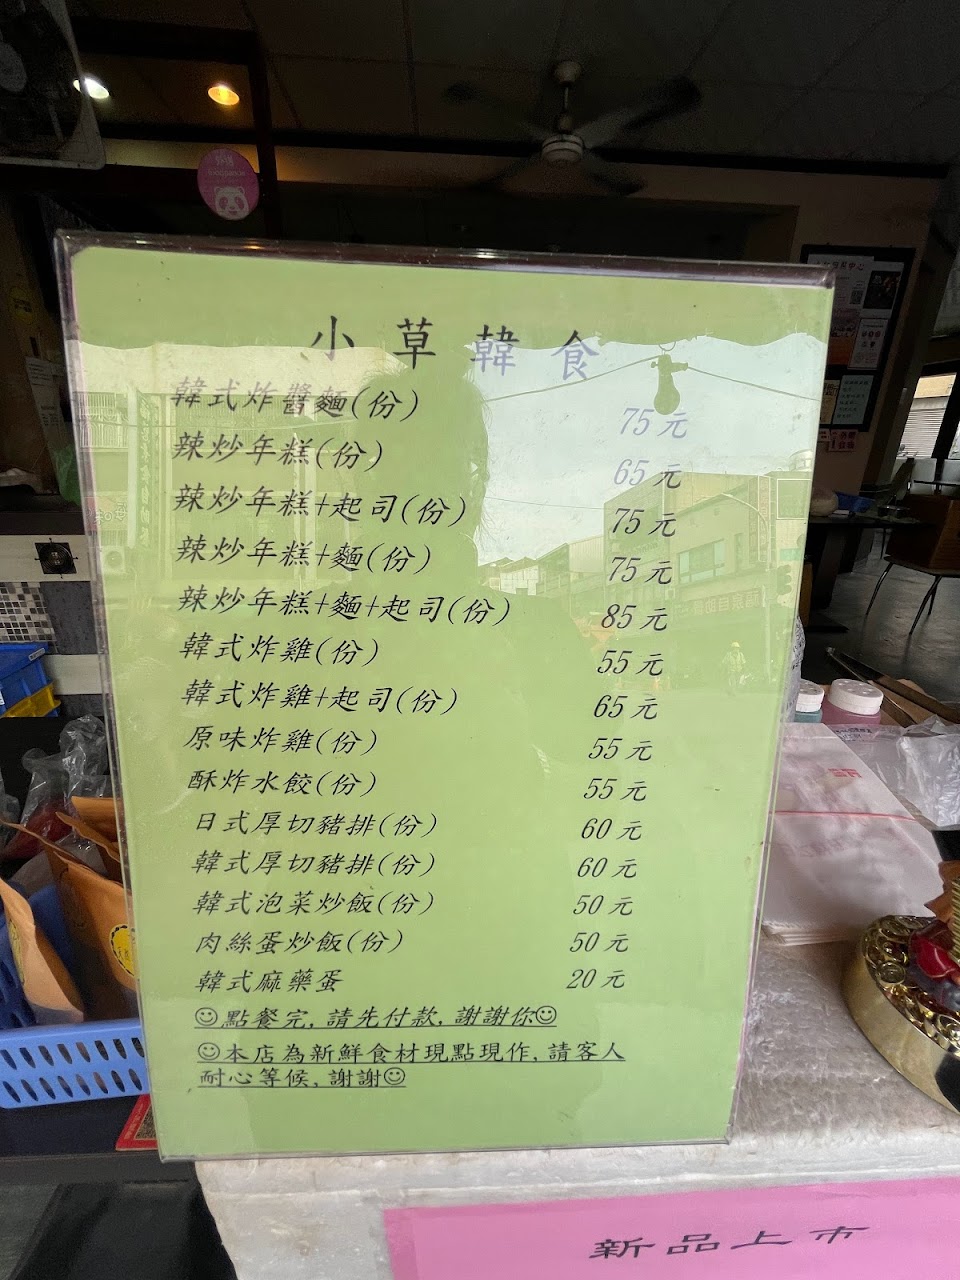 小草韓食
韓式炸醬麵(份) 75元
辣炒年糕(份) 65元
辣炒年糕+起司(份) 75元
辣炒年糕+麵(份) 75元
辣炒年糕+麵+起司(份) 85元
韓式炸雞(份) 55元
韓式炸雞+起司(份) 65元
原味炸雞(份) 55元
酥炸水餃(份) 55元
日式厚切豬排(份) 60元
韓式厚切豬排(份) 60元
韓式泡菜炒飯(份) 50元
肉絲蛋炒飯(份) 50元
韓式麻藥蛋 20元
☺點餐完,請先付款,謝謝你☺
☺本店為新鮮食材現點現作,請客人
耐心等候,謝謝☺
新品上市